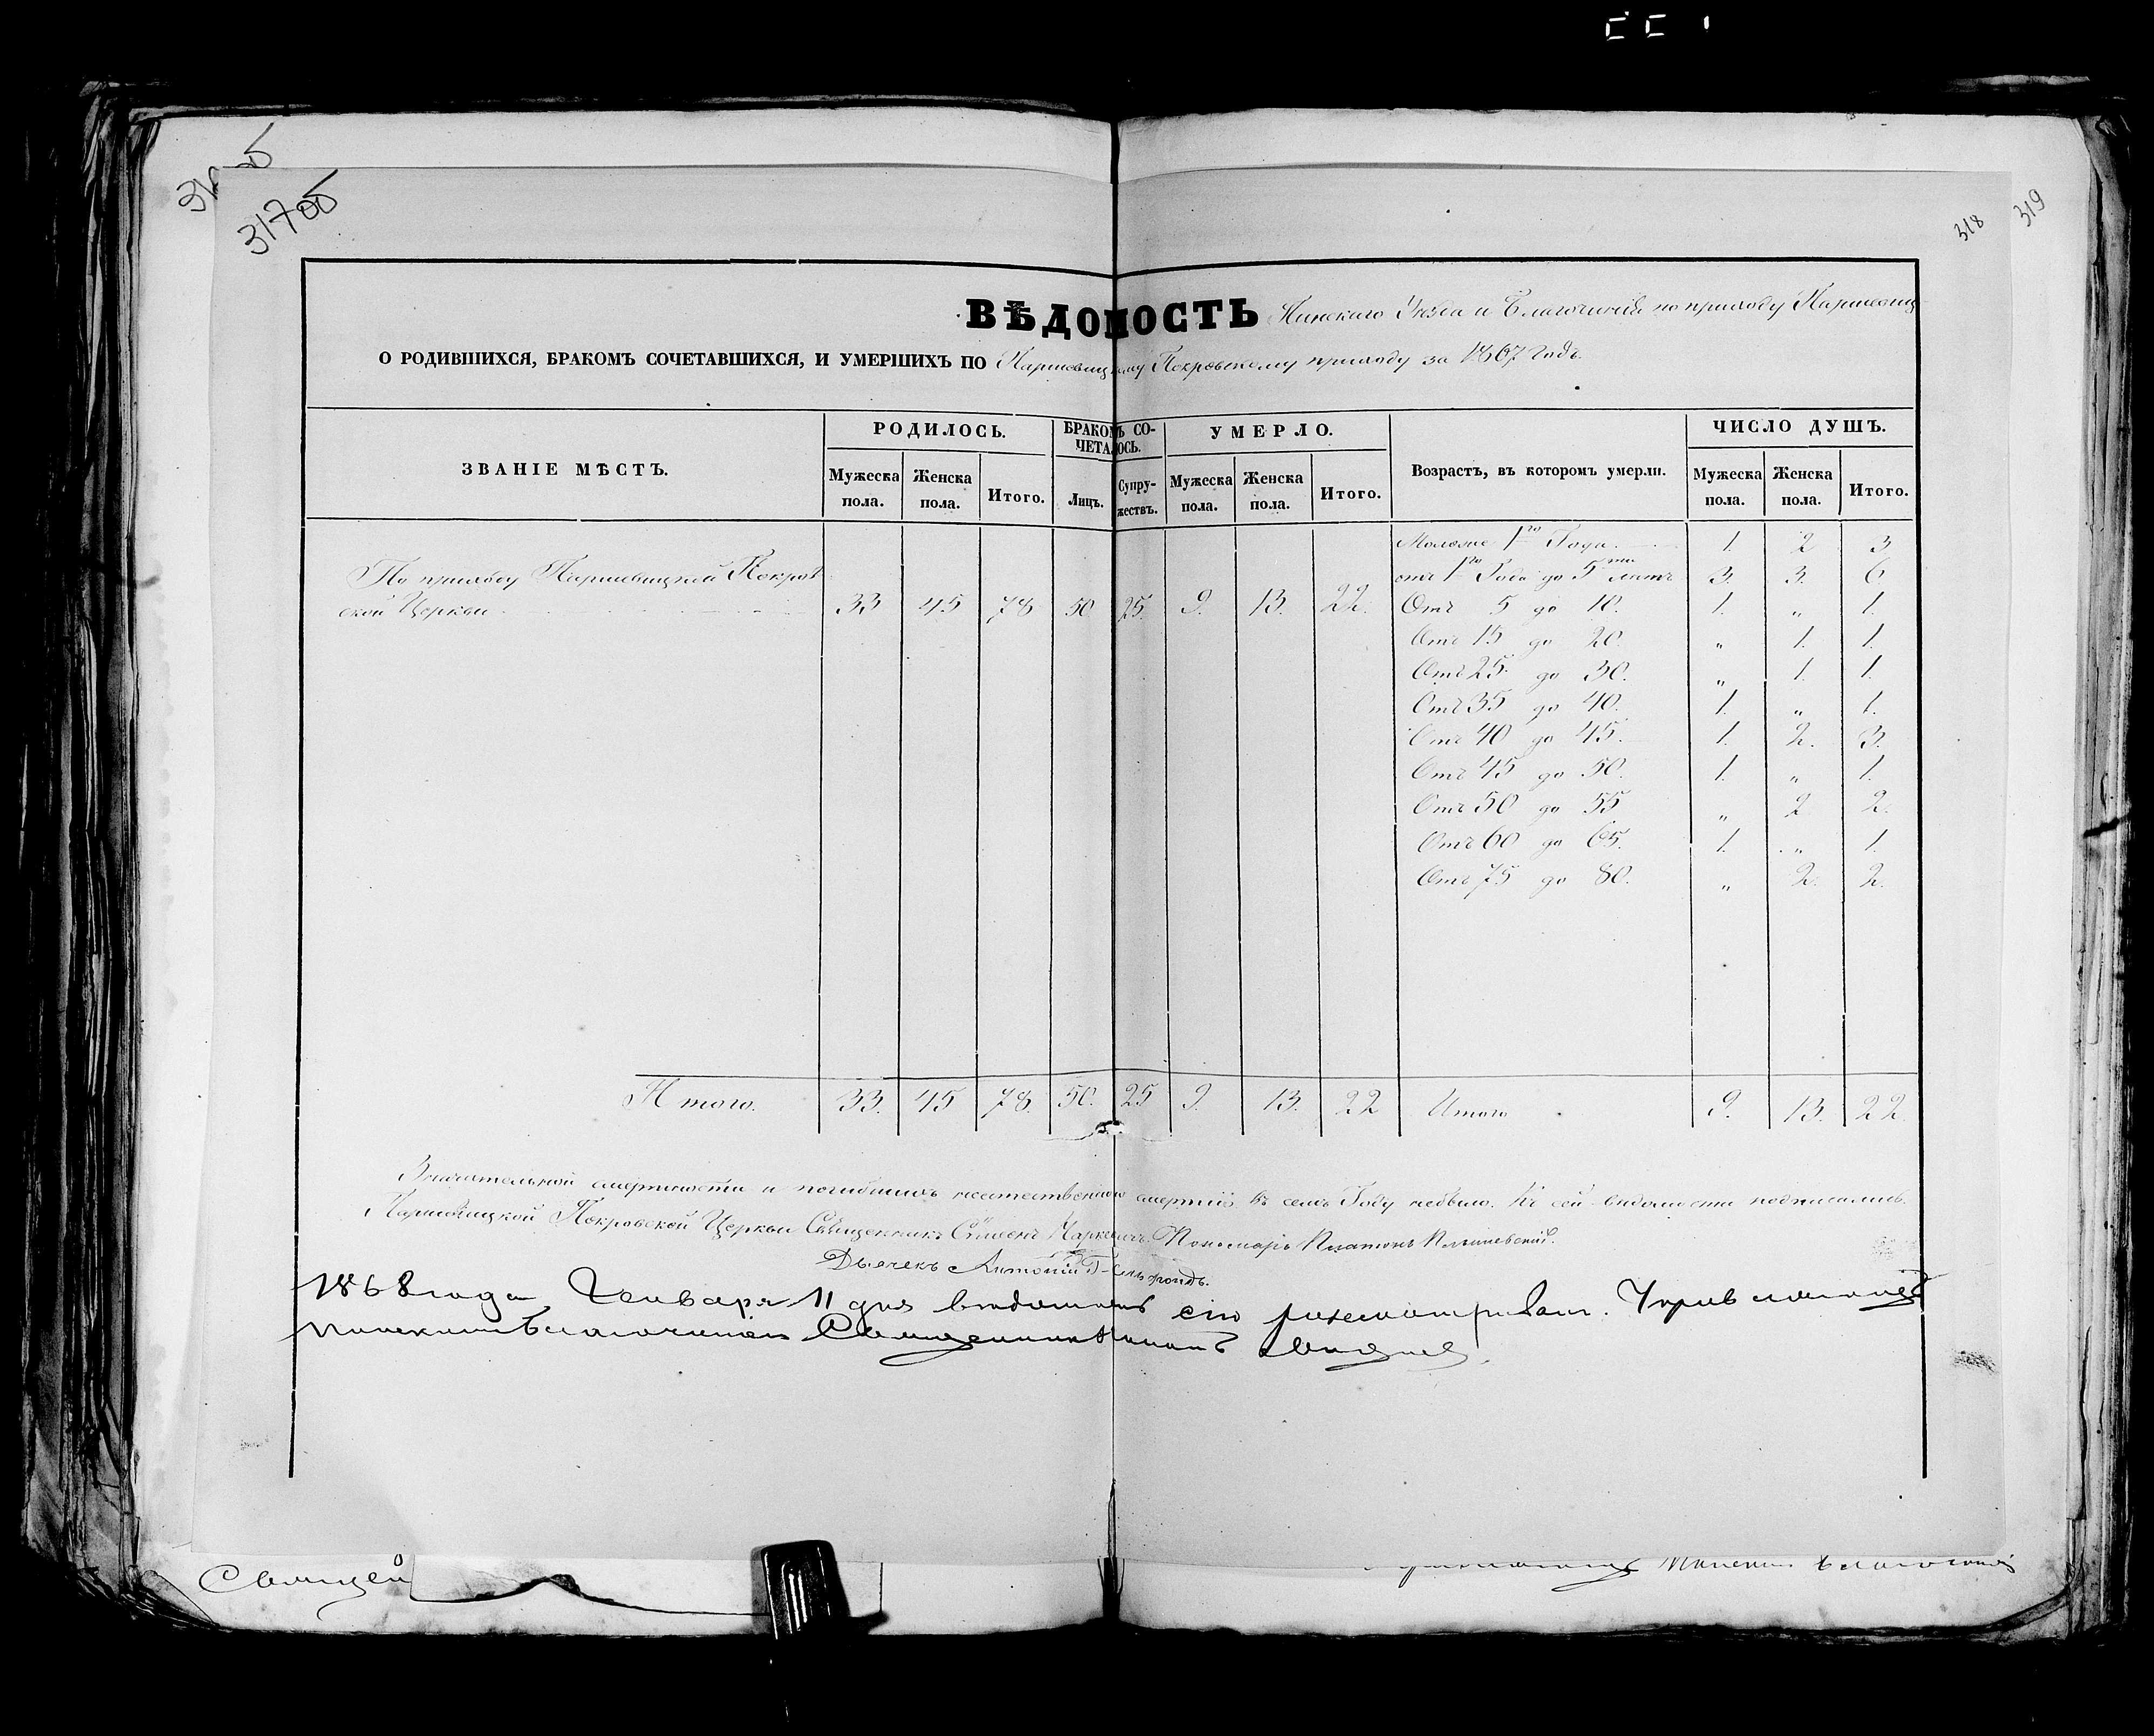 317об
318
319
ВѢДОМОСТЬ Пинскаго Уѣзда и Благочинія по приходу
О РОДИВШИХСЯ, БРАКОМЪ СОЧЕТАВШИХСЯ, И УМЕРШИХЪ ПО Паршевицкому Покровскому приходу за 1867 годъ.
ЗВАНІЕ МѢСТЪ. РОДИЛОСЬ. БРАКОМЪ СО- УМЕРЛО. Возрастъ, въ которомъ умерли. ЧИСЛО ДУШЪ.
ЧЕТАЛОСЬ.
Мужеска Женска Итого. Лицъ. Супру- Мужеска Женска Итого. Мужеска Женска Итого.
пола. пола. жествъ. пола. пола. пола. пола.
Моложе 1го Года. 1. 2 3
По приходу Паршевицкой Покров отъ 1го Года до 5ти лѣтъ 3. 3. 6.
ской Церкви 33 45 78 50 25. 9. 13. 22. Отъ 5 до 10. 1. „ 1.
Отъ 15 до 20. „ 1. 1.
Отъ 25. до 30. „ 1. 1.
Отъ 35 до 40. 1. „ 1.
Отъ 40 до 45. 1. 2. 3.
Отъ 45 до 50. 1. „ 1.
Отъ 50 до 55 „ 2 2.
Отъ 60 до 65. 1. „ 1.
Отъ 75 до 80. „ 2. 2.
Итого. 33. 45 78. 50. 25 9. 13. 22 Итого 9. 13. 22.
Значительной смертности и погибшихъ неестественною смертію въ семъ Году небыло. Къ сей вѣдомости подписались.
Паршевицкой Покровской Церкви Священникъ Сѵмеонъ Маркевичъ. Пономарь Платонъ
Дьячекъ Антоній
1868 года Генваря 11 дня вѣдомость сію разсматривалъ.
Пинскимъ Благочиніемъ Священникъ
Священ
Пинскимъ Благочиніе